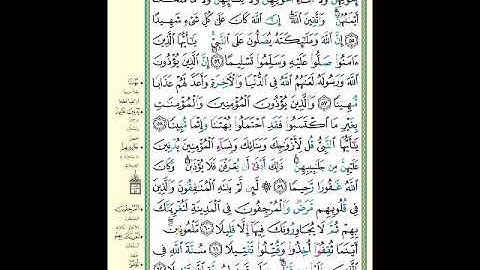 إِخْوَٰنِهِنَّ وَلَآ أَبْنَآءِ أَخَوَٰتِهِنَّ وَلَا نِسَآئِهِنَّ وَلَا مَا مَلَكَتْ
أَيْمَٰنُهُنَّ وَٱتَّقِينَ ٱللَّهَ إِنَّ ٱللَّهَ كَانَ عَلَىٰ كُلِّ شَىْءٍ شَهِيدًا
٥٥ إِنَّ ٱللَّهَ وَمَلَٰٓئِكَتَهُۥ يُصَلُّونَ عَلَى ٱلنَّبِىِّ يَٰٓأَيُّهَا ٱلَّذِينَ
ءَامَنُوا۟ صَلُّوا۟ عَلَيْهِ وَسَلِّمُوا۟ تَسْلِيمًا ٥٦ إِنَّ ٱلَّذِينَ يُؤْذُونَ
ٱللَّهَ وَرَسُولَهُۥ لَعَنَهُمُ ٱللَّهُ فِى ٱلدُّنْيَا وَٱلْءَاخِرَةِ وَأَعَدَّ لَهُمْ عَذَابًا
مُّهِينًا ٥٧ وَٱلَّذِينَ يُؤْذُونَ ٱلْمُؤْمِنِينَ وَٱلْمُؤْمِنَٰتِ
بِغَيْرِ مَا ٱكْتَسَبُوا۟ فَقَدِ ٱحْتَمَلُوا۟ بُهْتَٰنًا وَإِثْمًا مُّبِينًا ٥٨
يَٰٓأَيُّهَا ٱلنَّبِىُّ قُل لِّأَزْوَٰجِكَ وَبَنَاتِكَ وَنِسَآءِ ٱلْمُؤْمِنِينَ يُدْنِينَ
عَلَيْهِنَّ مِن جَلَٰبِيبِهِنَّ ذَٰلِكَ أَدْنَىٰٓ أَن يُعْرَفْنَ فَلَا يُؤْذَيْنَ وَكَانَ
ٱللَّهُ غَفُورًا رَّحِيمًا ٥٩ لَّئِن لَّمْ يَنتَهِ ٱلْمُنَٰفِقُونَ وَٱلَّذِينَ
فِى قُلُوبِهِم مَّرَضٌ وَٱلْمُرْجِفُونَ فِى ٱلْمَدِينَةِ لَنُغْرِيَنَّكَ
بِهِمْ ثُمَّ لَا يُجَاوِرُونَكَ فِيهَآ إِلَّا قَلِيلًا ٦٠ مَّلْعُونِينَ
أَيْنَمَا ثُقِفُوٓا۟ أُخِذُوا۟ وَقُتِّلُوا۟ تَقْتِيلًا ٦١ سُنَّةَ ٱللَّهِ فِى